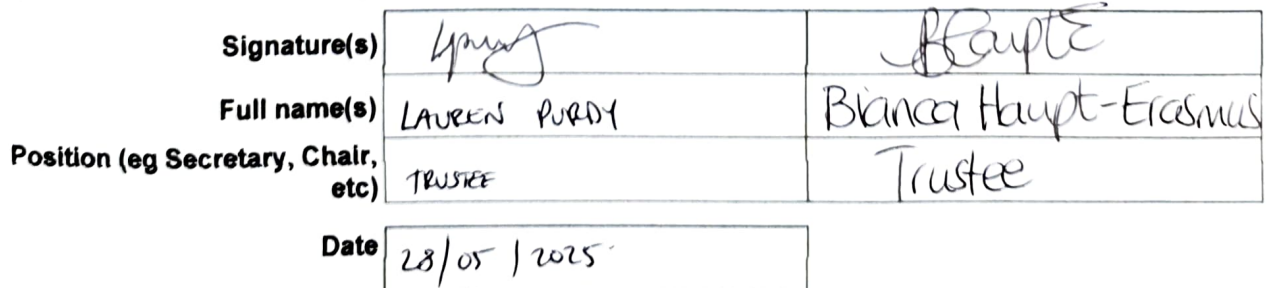 Signature(s)
Full name(s) LAUREN PURDY Bianca Haupt-Erasmus
Position (eg Secretary, Chair, etc) TRUSTEE Trustee
Date 28/05/2025